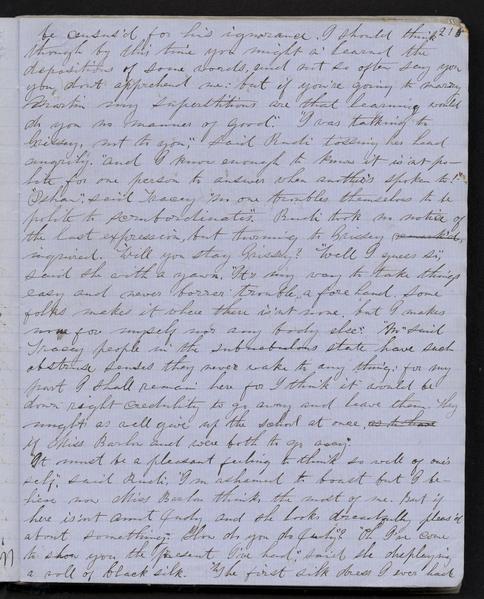 be censur'd, for his ignorance. I should think 215
though by this time you might a' learned the
disposition of some words, and not so often say you
you, don't apprehend me: but if you're going to marry
my superstitions are that learning would
do you no manner of good." "I was talking to
Grissey, not to you," said Rusti tossing her head
angrily. "and I know enough to know it is'nt po-
lite for one person to answer when another's spoken to!"
said Tracey "no one troubles themselves to be
polite to Rusti took no notice of
the last expression, but turning to Grissey
inquired, "Will you stay Grissey?" "Well I guess so,"
said she with a yawn. "It's my way to take things
easy and never borrer trouble, a fore hand, some
folks makes it where there is'nt none, but I makes
none for myself nor any body else." said
Tracey people in the state have such
abstruse senses they never wake to any thing: for my
part I shall remain here for I think it would be
down right credulity to go away and leave them. They
might as well give up the school at once
if Miss Barlow and were both to go away."
"It must be a pleasant feeling to think so well of one's
self," said Rusti. "I'm ashamed to boast but I be-
lieve now Miss Barlow thinks the most of me. But if
here is'nt aunt Judy, and she looks dreadfully pleas'd
about something. How do you do Judy?" "Oh I've come
to show you the Present I've had," said she displaying
a roll of black silk. "The first silk dress I ever had